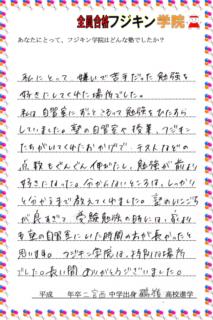 全員合格フジキン学院
あなたにとって、フジキン学院はどんな塾でしたか?
私にとって、嫌いで苦手だった勉強を
好きにしてくれた場所でした。
私は自習室にずっとこもって勉強をひたすら
していました。塾の自習室や授業、フジキン
たちがいてくれたおかげで、テストなどの
点数もぐんぐん伸びたし、勉強が前より
好きになった。分からないところは、しっかり
と分かるまで教えてくれました。塾のいごこち
が良すぎて、受験勉強の時には、家より
も塾の自習室にいた時間の方が長かったと
思います。フジキン学院は、特別な場所
でした。長い間ありがとうございました。
平成 年卒 二宮西 中学出身 高校進学